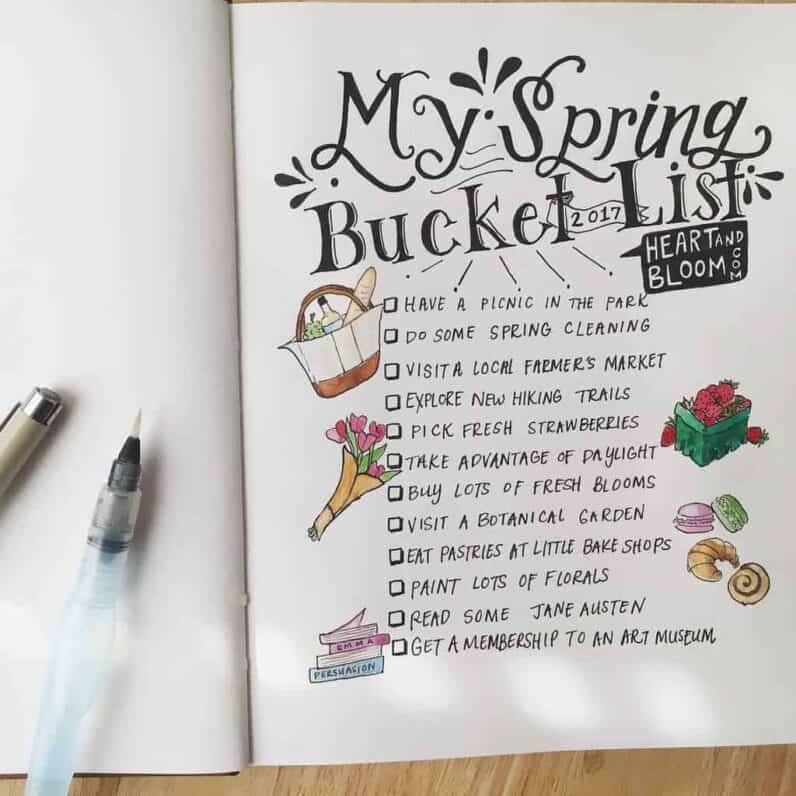 My Spring
Bucket List
2017
HEART AND
BLOOM .COM
HAVE A PICNIC IN THE PARK
DO SOME SPRING CLEANING
VISIT A LOCAL FARMER'S MARKET
EXPLORE NEW HIKING TRAILS
PICK FRESH STRAWBERRIES
TAKE ADVANTAGE OF DAYLIGHT
BUY LOTS OF FRESH BLOOMS
VISIT A BOTANICAL GARDEN
EAT PASTRIES AT LITTLE BAKE SHOPS
PAINT LOTS OF FLORALS
READ SOME JANE AUSTEN
GET A MEMBERSHIP TO AN ART MUSEUM
EMMA
PERSUASION